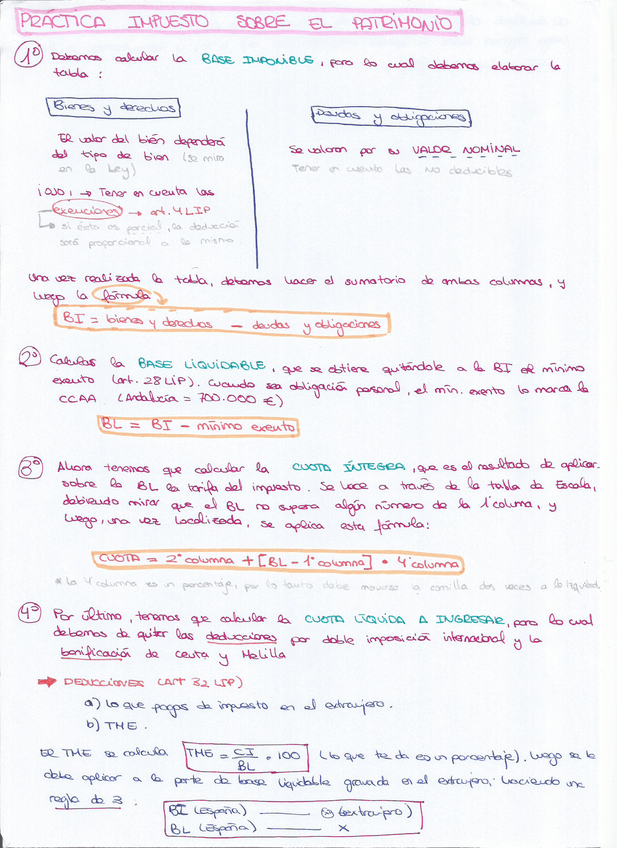 PRÁCTICA IMPUESTO SOBRE EL PATRIMONIO
1º Debemos calcular la BASE IMPONIBLE, para lo cual debemos elaborar la
tabla:
Bienes y derechos
Deudas y obligaciones
El valor del bién dependerá
del tipo de bien (se mira
en la Ley)
Se valoran por su VALOR NOMINAL
Tener en cuenta las NO deducibles
¡OJO! → Tener en cuenta las
exenciones → art. 4 LIP
si ésta es parcial, la deducción
será proporcional a la misma.
Una vez realizada la tabla, debemos hacer el sumatorio de ambas columnas, y
luego la fórmula
BI = bienes y derechos - deudas y obligaciones
2º Calculas la BASE LIQUIDABLE, que se obtiene quitándole a la BI el mínimo
exento (art. 28 LIP). Cuando sea obligación personal, el mín. exento lo marca la
CCAA. (Andalucía = 700.000 €)
BL = BI - mínimo exento
3º Ahora tenemos que calcular la CUOTA ÍNTEGRA, que es el resultado de aplicar
sobre la BL la tarifa del impuesto. Se hace a través de la tabla de Escala,
debiendo mirar que el BL no supera algún número de la 1ª columna, y
luego, una vez localizada, se aplica esta fórmula:
CUOTA = 2ª columna + [BL - 1ª columna] • 4ª columna
* La 4ª columna es un porcentaje, por lo tanto debe moverse la comilla dos veces a la izquierd.
4º Por último, tenemos que calcular la CUOTA LÍQUIDA A INGRESAR, para lo cual
debemos de quitar las deducciones por doble imposición internacional y la
bonificación de Ceuta y Melilla
→ DEDUCCIONES (ART 32 LIP)
a) Lo que pagas de impuesto en el extranjero.
b) TME.
El TME se calcula TME = CI/BL • 100 (lo que te da es un porcentaje). Luego se le
debe aplicar a la parte de base liquidable gravada en el extranjero, haciendo una
regla de 3:
BI (España) —— (extranjero)
BL (España) —— x